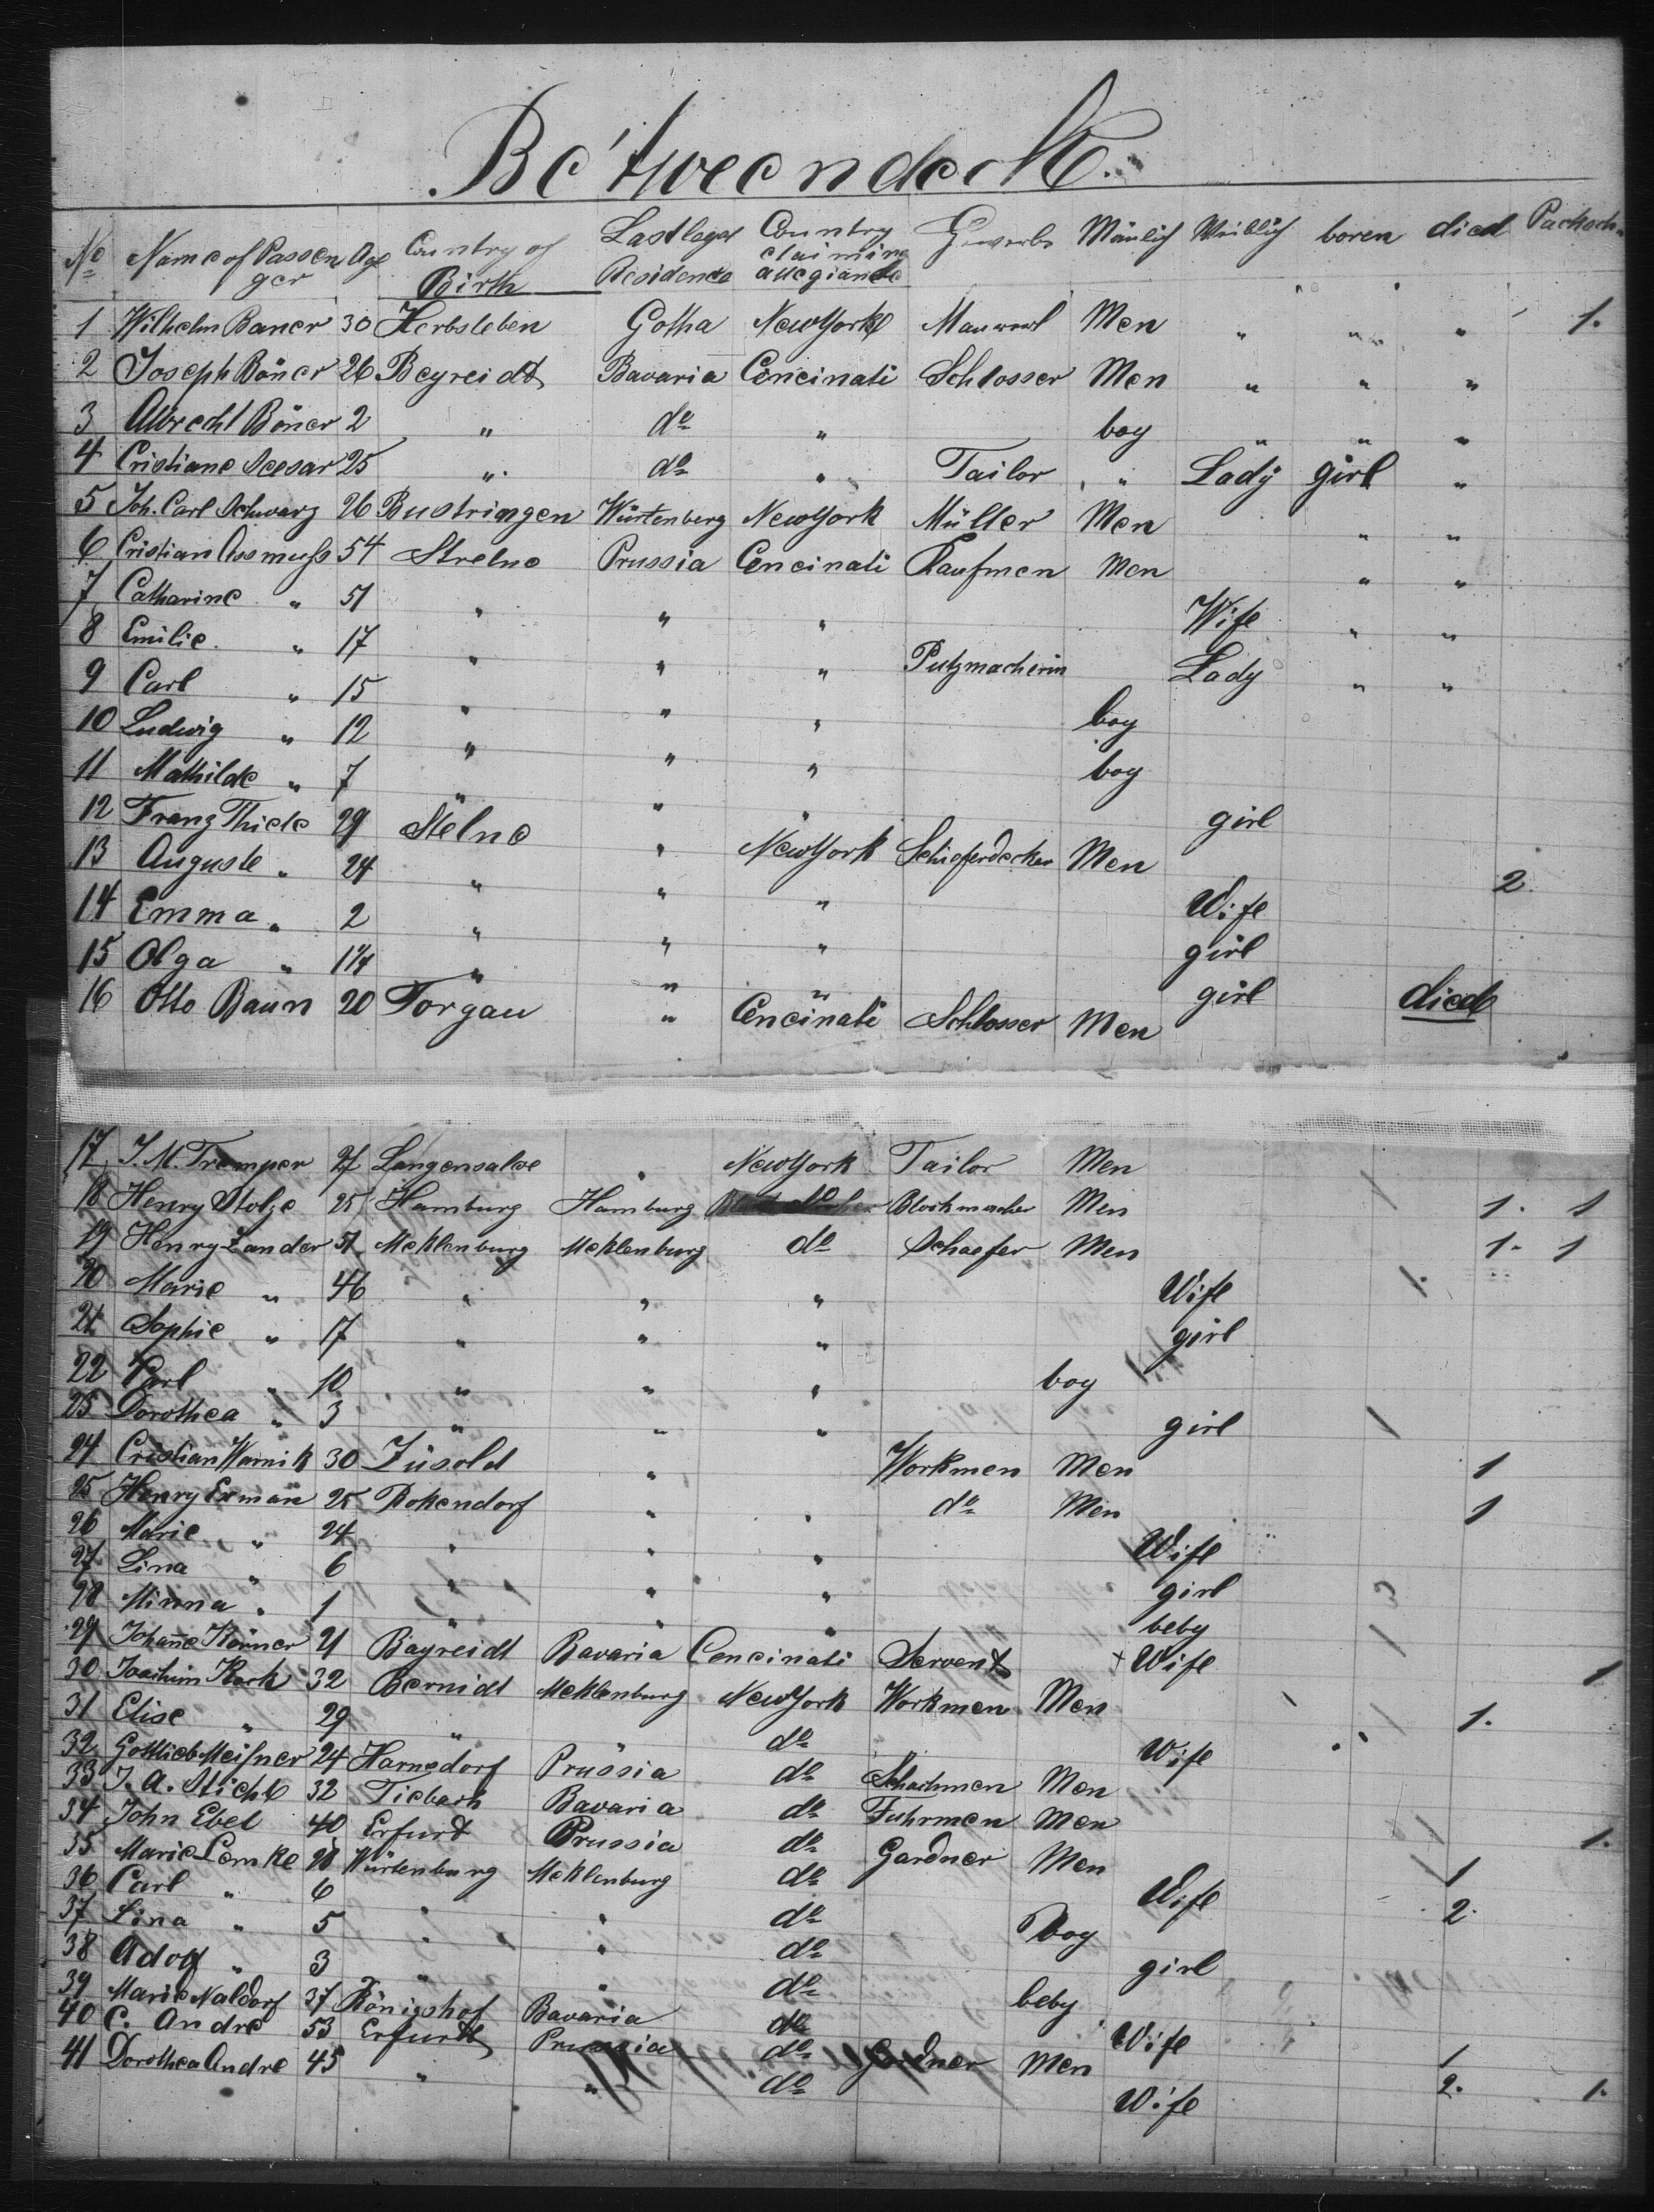 Be'tweendeck.
No Name of Passenger Age Country of Birth Last legal Residence Country claiming allegiance Gewerbe Mänlich Weiblich boren died
1 Wilhelm Baner 30 Herbsleben Gotha NewYork Men " " " 1.
2 Joseph Böner 26 Beyreidt Bavaria Cencinati Schlosser Men " " "
3 Albrecht Böner 2 " do " boy " " "
4 Cristiane 25 " do " Tailor " Lady girl "
5 Joh. Carl Schwarz 26 Bustringen Würtenberg NewYork Müller Men " "
6 Cristian Assmuss 54 Strelno Prussia Cencinati Kaufmen Men " "
7 Catharine " 51 " " " Wife " "
8 Emilie " 17 " " " Putzmacherin Lady " "
9 Carl " 15 " " " boy
10 Ludwig " 12 " " " boy
11 Mathilde " 7 " " " girl
12 Franz Thiele 29 Stelno " NewYork Schieferdecker Men 2.
13 Auguste " 24 " " " Wife
14 Emma " 2 " " " girl
15 Olga " 1¼ " " " girl died
16 Otto Baun 20 Torgau " Cencinati Schlosser Men
17 J. M. Tremper 27 Langensalve " NewYork Tailor Men
18 Henry Stolze 25 Hamburg Hamburg Blockmacher Men 1. 1
19 Henry Zander 51 Meklenburg Meklenburg do Schaefer Men 1. 1
20 Marie " 46 " " " Wife
21 Sophie " 17 " " " girl
22 Carl " 10 " " " boy
23 Dorothea " 3 " " " girl
24 Cristian Warnik 30 Züsold " Workmen Men 1
25 Henry Exman 25 Rokendorf " " do Men 1
26 Marie " 24 " " " Wife
27 Lina " 6 " " " girl
28 Minna " 1 " " " beby
29 Johane Körner 21 Bayreidt Bavaria Cencinati Servent + Wife 1
30 Joachim Kork 32 Bernidt Meklenburg NewYork Workmen Men 1.
31 Elise " 29 " do Wife
32 Gottlieb Meisner 24 Harnsdorf Prussia do Men
33 J. A. Sticht 32 Tiebach Bavaria do Fuhrmen Men
34 John Ebel 40 Erfurd Prussia do Gardner Men 1 1.
35 Marie Lemke 28 Würtenburg Meklenburg do Wife 2.
36 Carl " 6 " " do boy
37 Lina " 5 " " do girl
38 Adolf " 3 " " do beby
39 Marie Naldorf 37 Königshof Bavaria do Wife 1
40 C. Andre 53 Erfurdt Prussia do Gardner Men 2. 1.
41 Dorothea Andre 45 " " do Wife